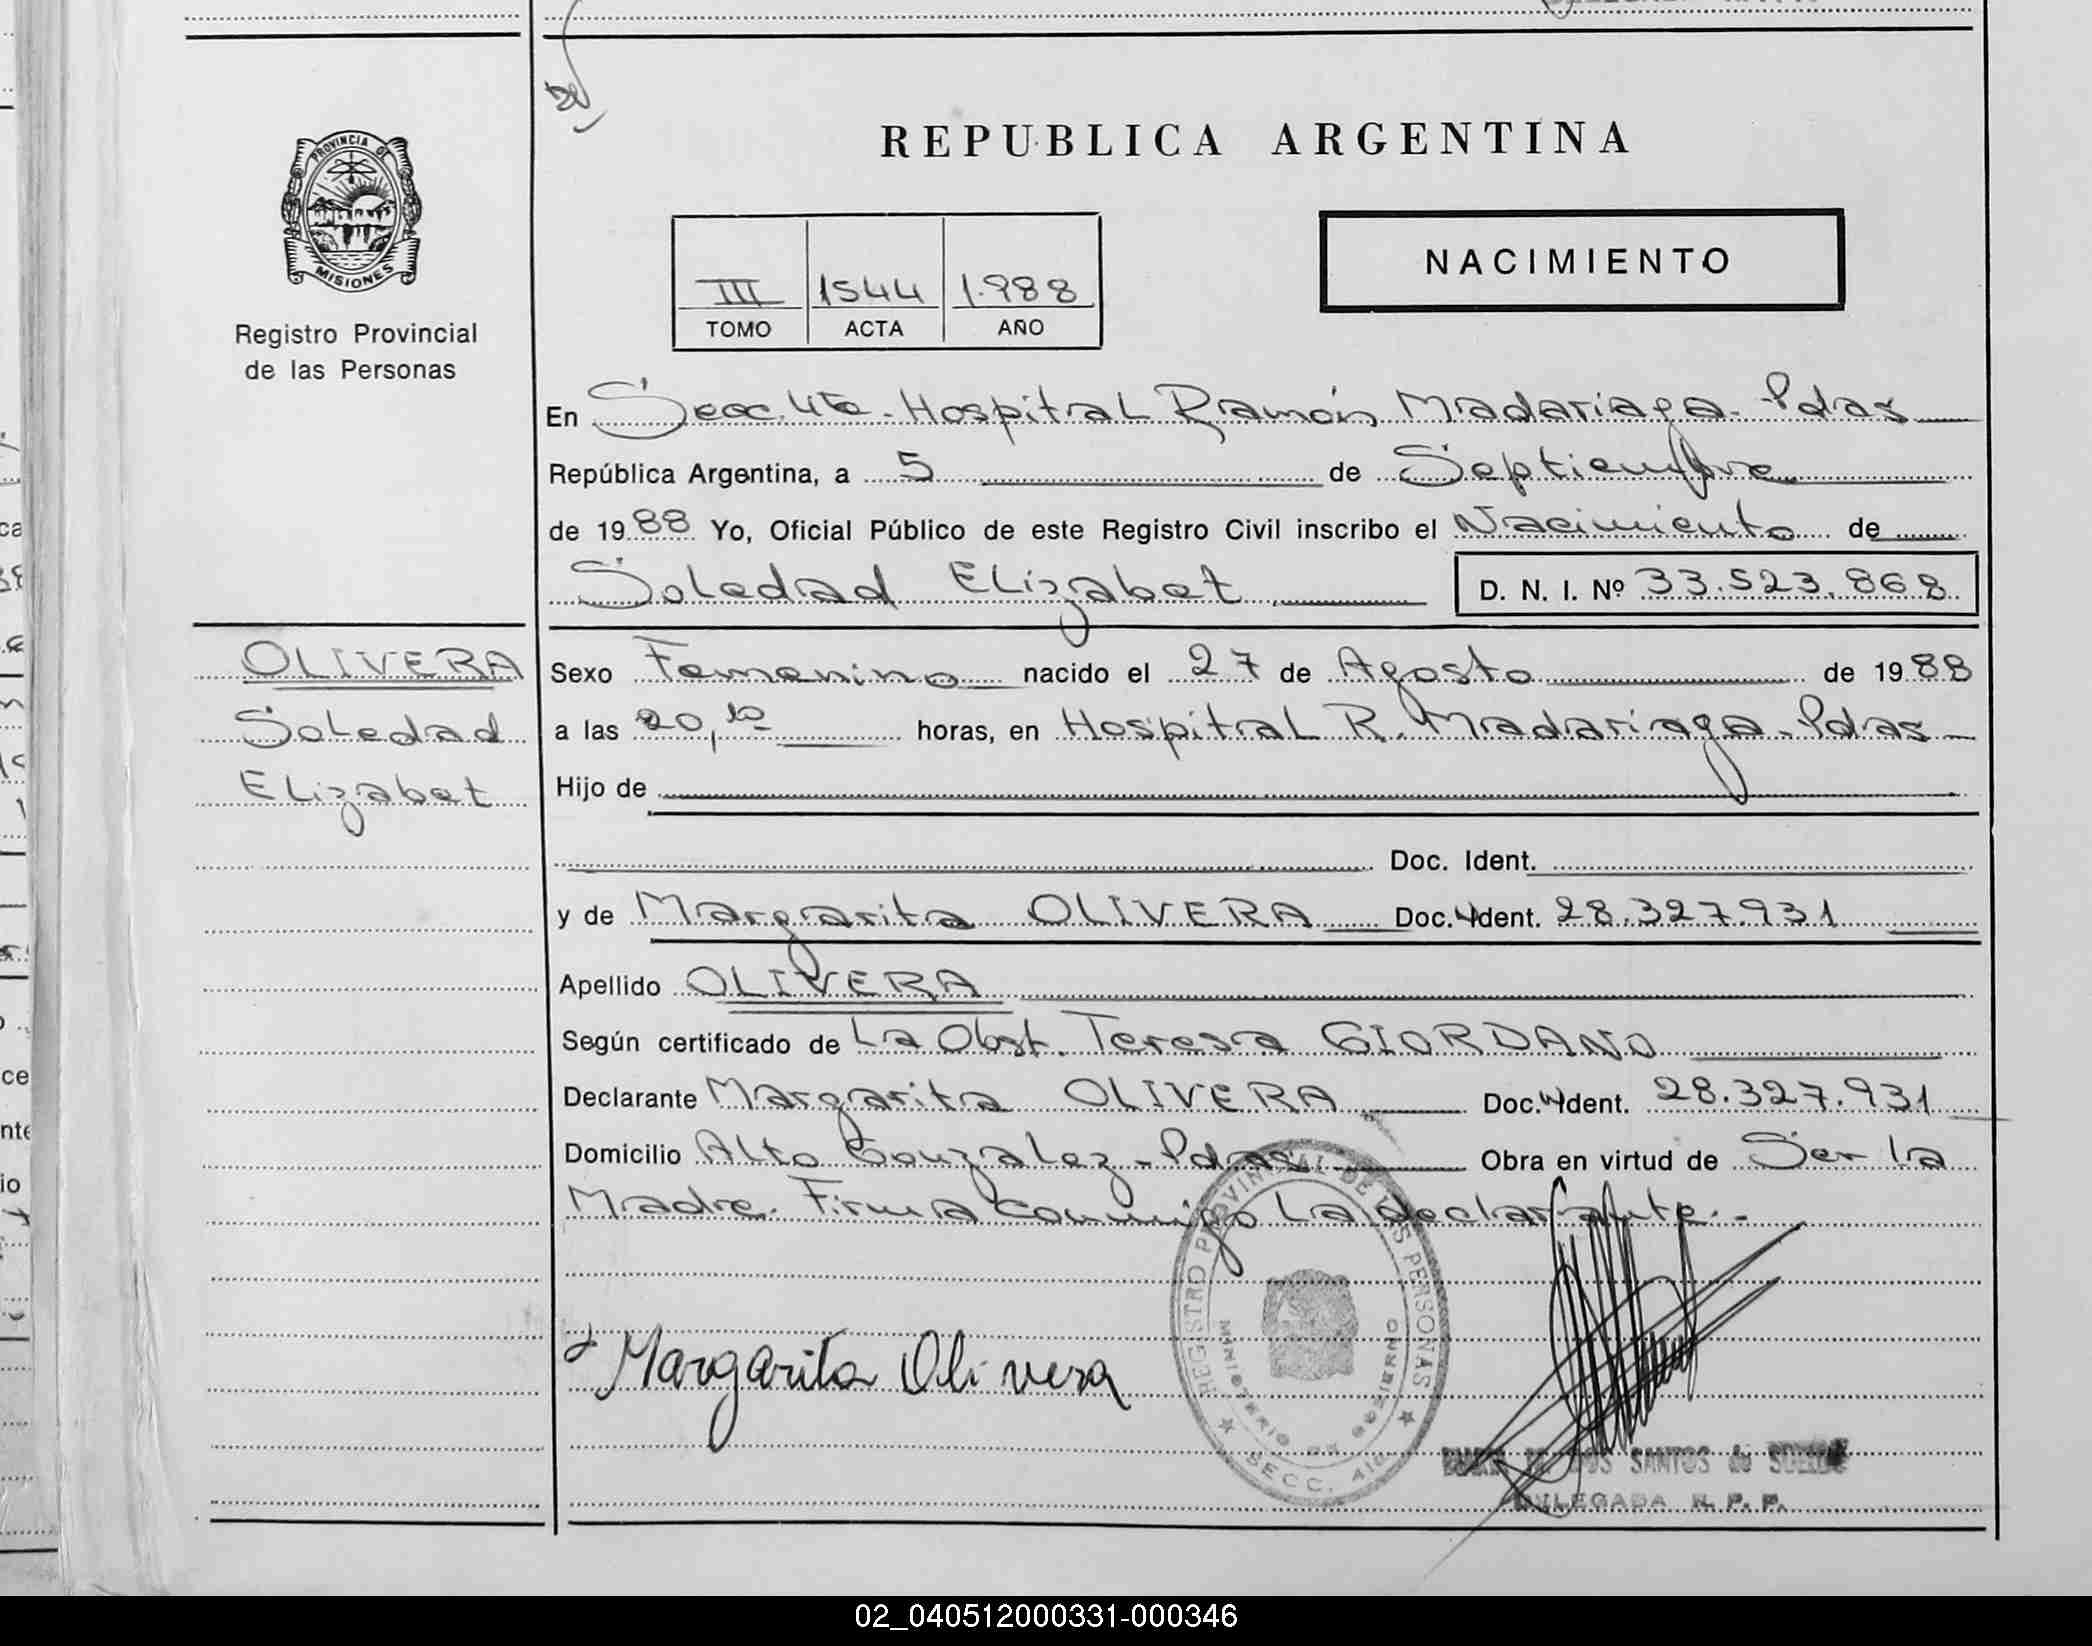 REPUBLICA ARGENTINA
PROVINCIA DE
MISIONES
Registro Provincial
de las Personas
NACIMIENTO
III 1544 1.988
TOMO ACTA AÑO
En Secc. 4ta. Hospital Ramón Madariaga. Pdas
República Argentina, a 5 de Septiembre
de 1988 Yo, Oficial Público de este Registro Civil inscribo el Nacimiento de
Soledad Elizabet D. N. I. Nº 33.523.868
OLIVERA
Soledad
Elizabet
Sexo Femenino nacido el 27 de Agosto de 1988
a las 20,10 horas, en Hospital R. Madariaga. Pdas
Hijo de
Doc. Ident.
y de Margarita OLIVERA Doc. Ident. 28.327.931
Apellido OLIVERA
Según certificado de La Obst. Teresa GIORDANO
Declarante Margarita OLIVERA Doc. Ident. 28.327.931
Domicilio Alto Gonzalez - Pdas Obra en virtud de Ser la
Madre. Firma conmigo La declarante.-
Margarita Olivera
REGISTRO PROVINCIAL DE LAS PERSONAS
MINISTERIO DE GOBIERNO
SECC. 4ta
DOS SANTOS de
DELEGADA R. P. P.
02_040512000331-000346